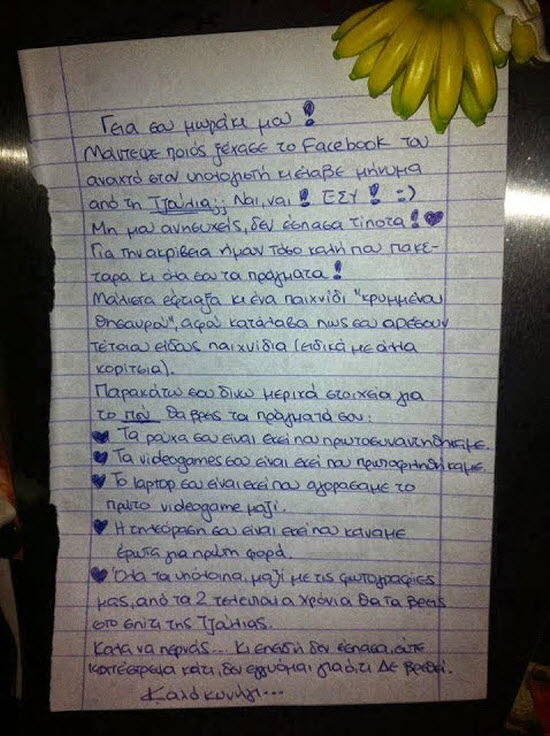 Γεια σου μωράκι μου!
Μάντεψε ποιός ξέχασε το Facebook του
ανοιχτό στον υπολογιστή κι έλαβε μήνυμα
από τη Τζούλια;; Ναι, ναι! ΕΣΥ! :=)
Μη μου ανησυχείς, δεν έσπασα τίποτα! ♥
Για την ακρίβεια ήμαν τόσο καλή που πακέ-
ταρα κι όλα σου τα πράγματα!
Μάλιστα έφτιαξα κι ένα παιχνίδι "κρυμμένου
θησαυρού", αφού κατάλαβα πως σου αρέσουν
τέτοια είδους παιχνίδια (ειδικά με άλλα
κορίτσια).
Παρακάτω σου δίνω μερικά στοιχεία για
το πού θα βρεις τα πράγματά σου:
♥ Τα ρούχα σου είναι εκεί που πρωτοσυναντηθήκαμε.
♥ Τα videogames σου είναι εκεί που πρωτοφιληθήκαμε.
♥ Το laptop σου είναι εκεί που αγοράσαμε το
πρώτο videogame μαζί.
♥ Η τηλεόραση σου είναι εκεί που κάναμε
έρωτα για πρώτη φορά.
♥ Όλα τα υπόλοιπα, μαζί με τις φωτογραφίες
μας, από τα 2 τελευταία χρόνια θα τα βρεις
στο σπίτι της Τζούλιας.
Καλά να περνάς... Κι επειδή δεν έσπασα, ούτε
κατέστρεψα κάτι, δεν εγγυώμαι για ό,τι ΔΕ βρεθεί.
Καλό κυνήγι...